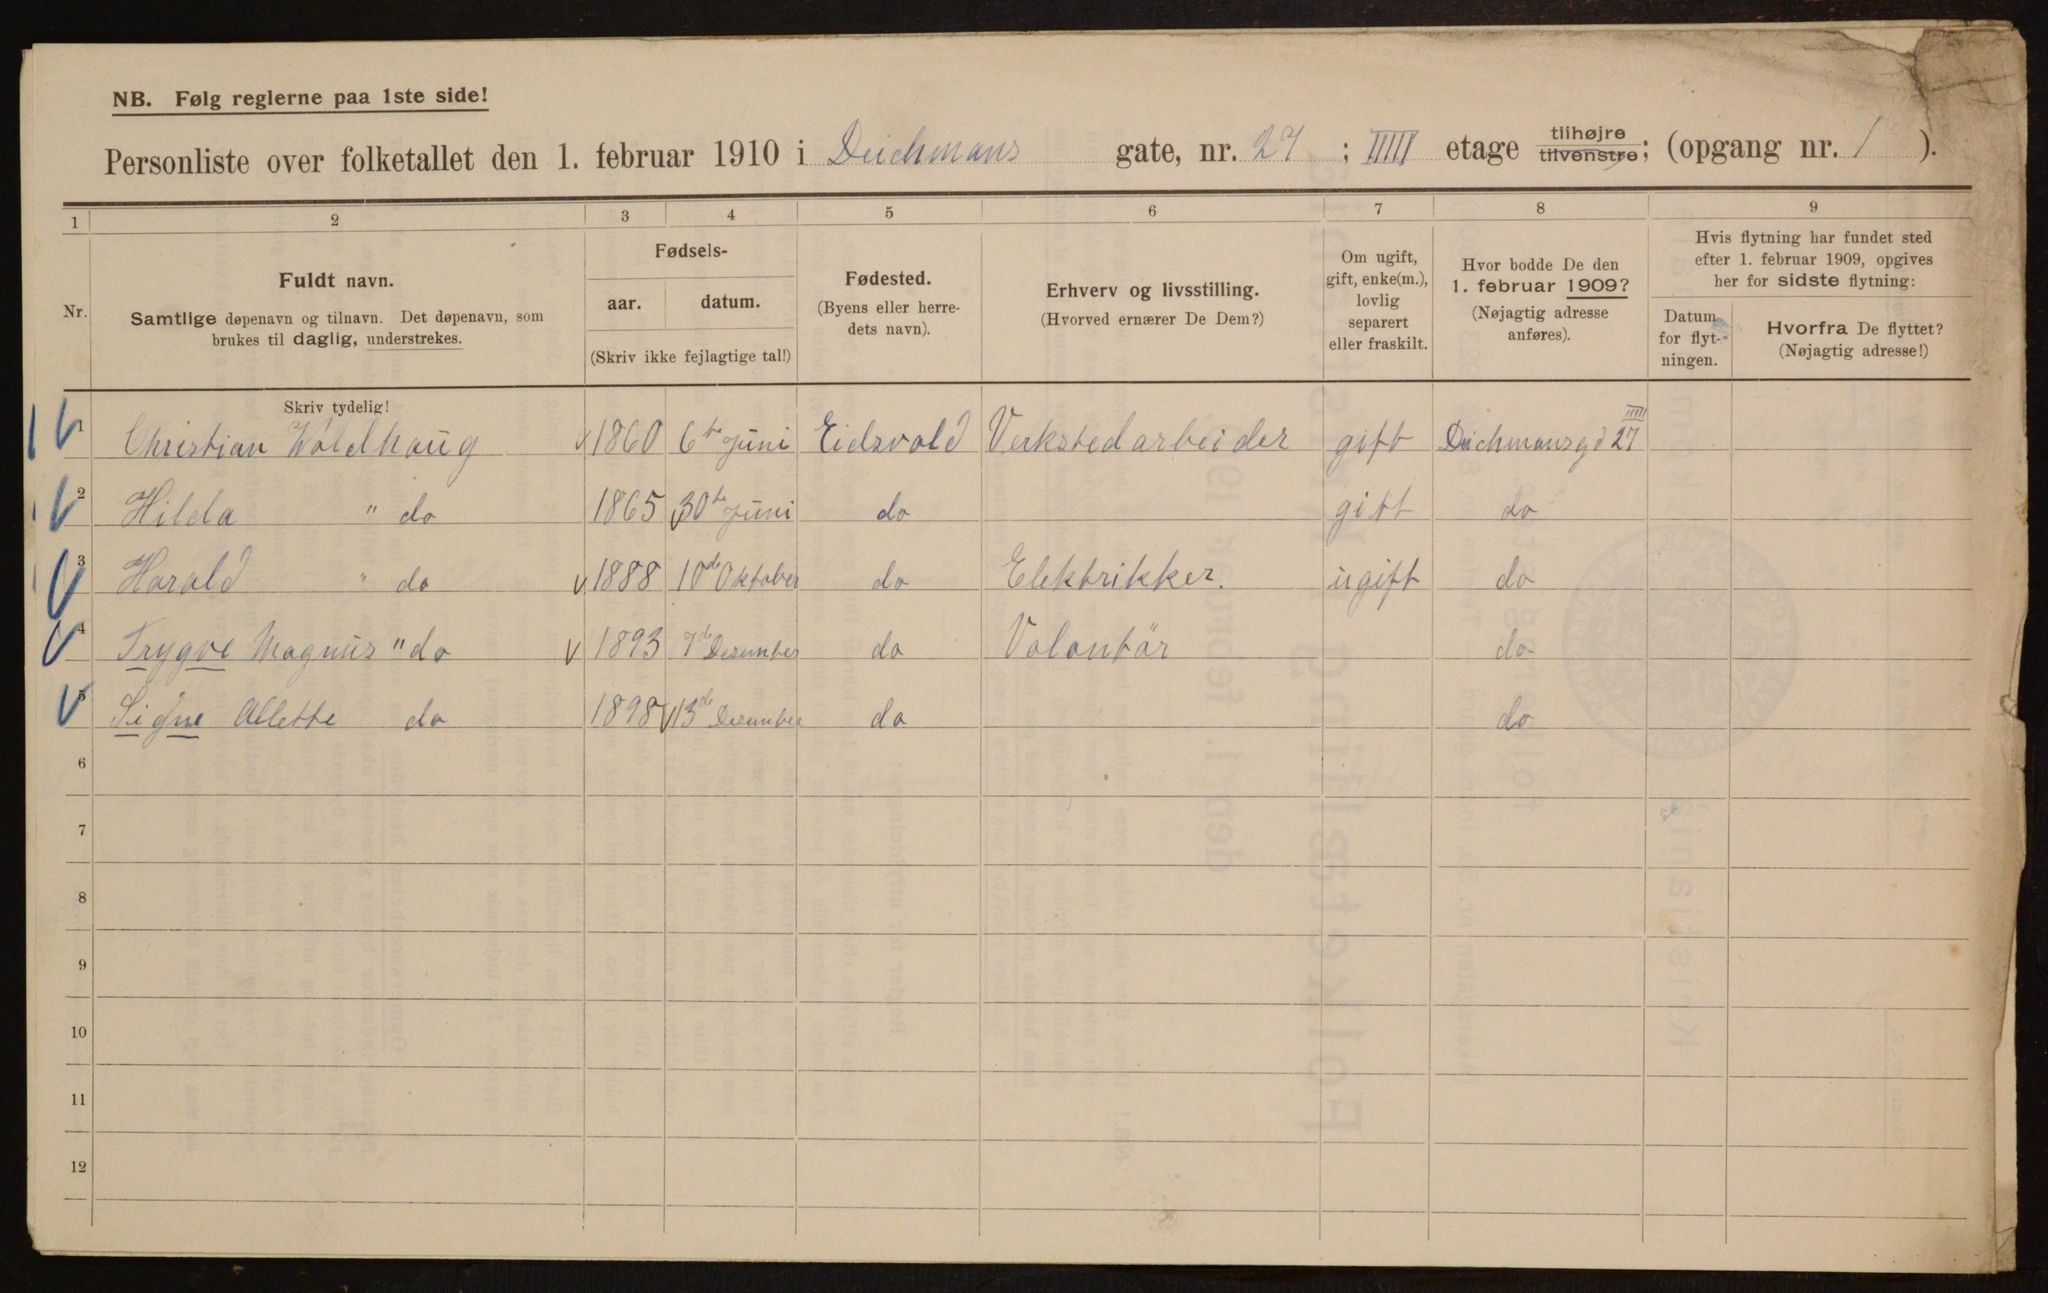 NB. Følg reglerne paa 1ste side!
Personliste over folketallet den 1. februar 1910 i Deichmans gate, nr. 27 ; IIIII etage tilhøjre tilvenstre; (opgang nr. 1 ).
1 2 3 4 5 6 7 8 9
Nr.
Fuldt navn.
Samtlige døpenavn og tilnavn. Det døpenavn, som
brukes til daglig, understrekes.
Skriv tydelig!
Fødsels-
aar. datum.
(Skriv ikke fejlagtige tal!)
Fødested.
(Byens eller herre-
dets navn).
Erhverv og livsstilling.
(Hvorved ernærer De Dem?)
Om ugift,
gift, enke(m.),
lovlig
separert
eller fraskilt.
Hvor bodde De den
1. februar 1909?
(Nøjagtig adresse
anføres).
Hvis flytning har fundet sted
efter 1. februar 1909, opgives
her for sidste flytning:
Datum
for flyt-
ningen.
Hvorfra De flyttet?
(Nøjagtig adresse!)
1 Christian Woldhaug 1860 6te Juni Eidsvold Verkstedarbeider gift Deichmansgd 27 IIIII
2 Hilda " do 1865 30te Juni do gift do
3 Harald " do 1888 10de Oktober do Elektrikker. ugift do
4 Trygve Magnus " do 1893 7de Desember do Volontär do
5 Signe Allette do 1898 13de Desember do do
6
7
8
9
10
11
12